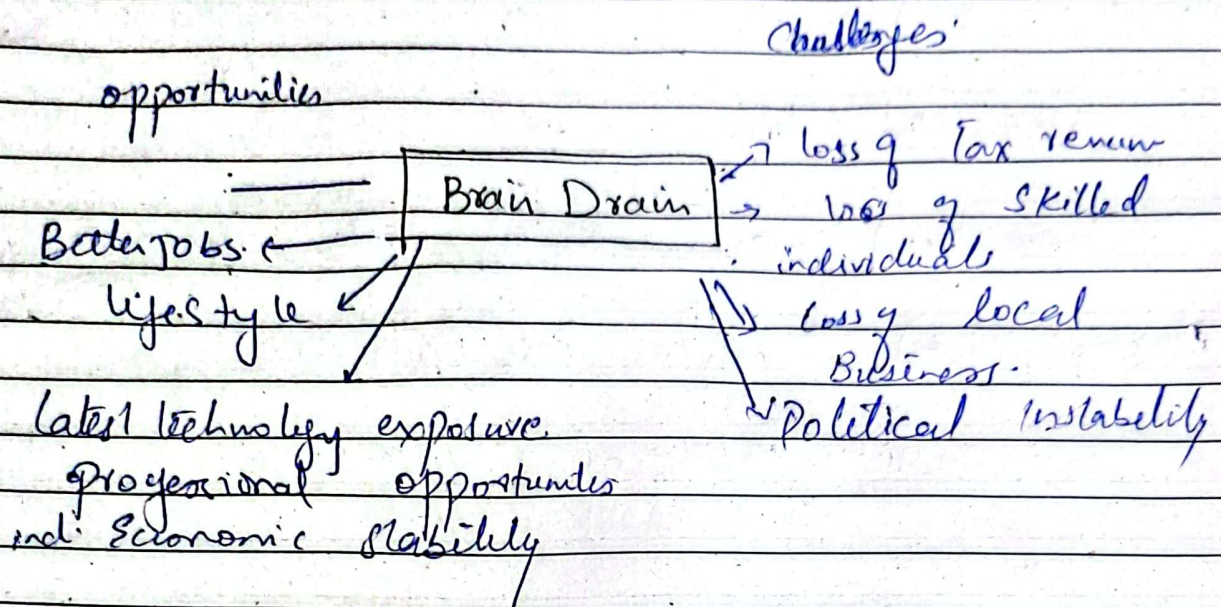 Challenges
opportunities
Brain Drain
loss of Tax
loss of skilled
individuals
loss of local
Business.
Political Instability
Better jobs.
lifestyle
Latest technology exposure.
professional opportunities
Economic stability